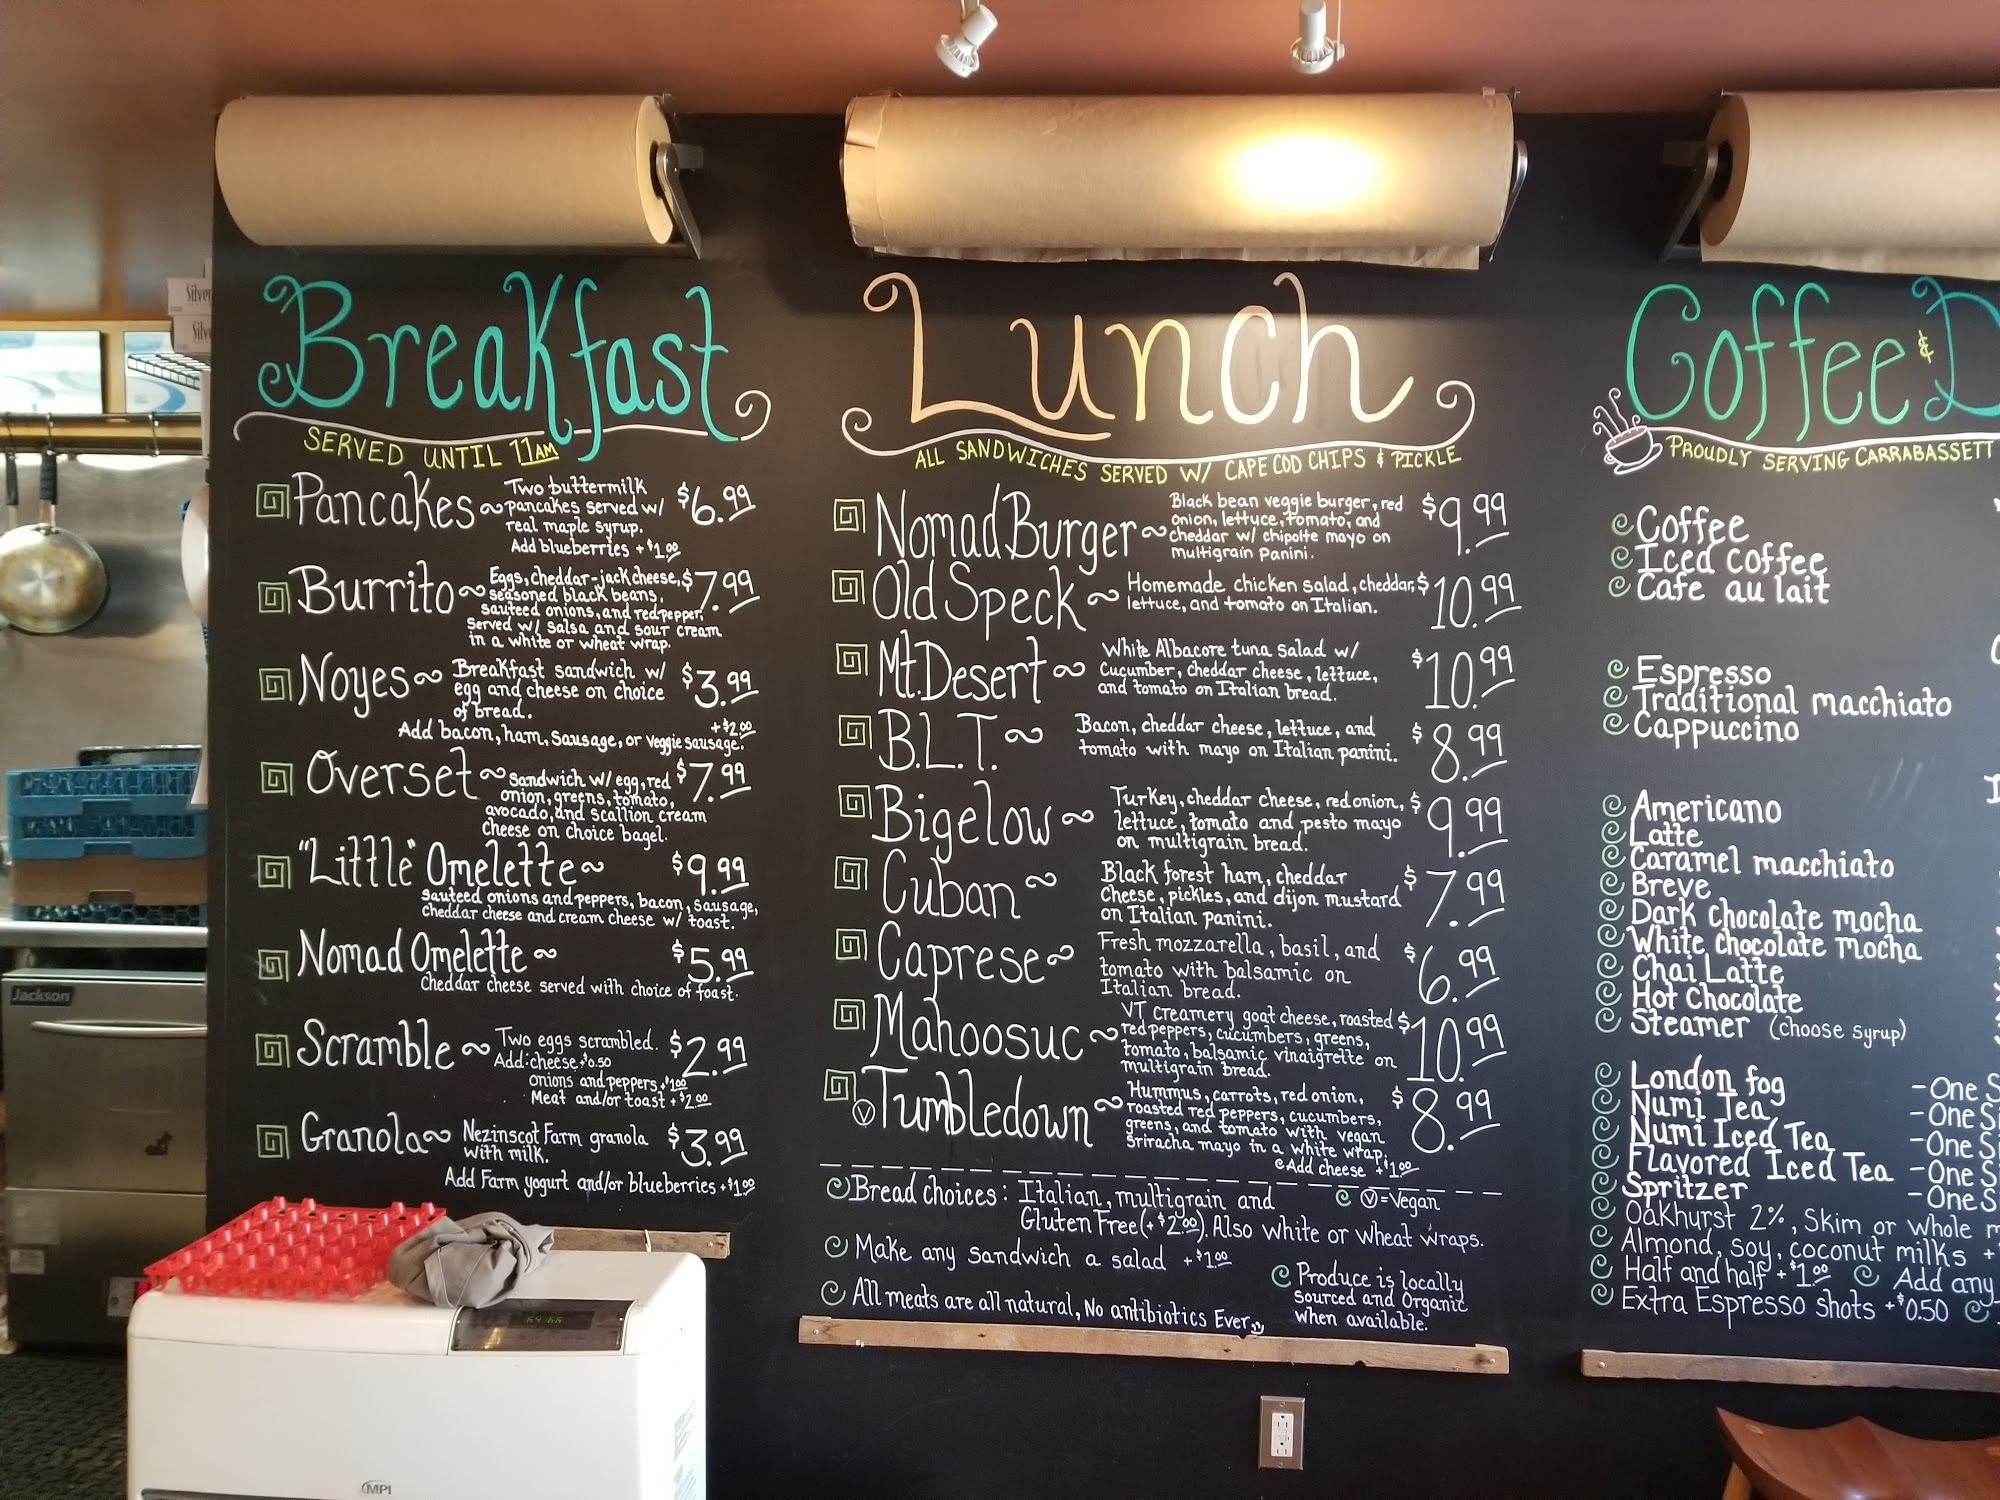 Breakfast
SERVED UNTIL 11AM
Pancakes ~ Two buttermilk $6.99
pancakes served w/
real maple syrup.
Add blueberries +$1.00
Burrito ~ Eggs, cheddar-jack cheese, $7.99
seasoned black beans,
sauteed onions, and red pepper,
served w/ salsa and sour cream
in a white or wheat wrap.
Noyes ~ Breakfast sandwich w/ $3.99
egg and cheese on choice
of bread.
+$2.00
Add bacon, ham, sausage, or veggie sausage.
Overset ~ Sandwich w/ egg, red $7.99
onion, greens, tomato,
avocado, and scallion cream
cheese on choice bagel.
"Little" Omelette ~ $9.99
Sauteed onions and peppers, bacon, sausage,
cheddar cheese and cream cheese w/ toast.
Nomad Omelette ~ $5.99
Cheddar cheese served with choice of toast.
Scramble ~ Two eggs scrambled. $2.99
Add: cheese +$0.50
onions and peppers +$1.00
Meat and/or toast +$2.00
Granola ~ Nezinscot Farm granola $3.99
with milk.
Add Farm yogurt and/or blueberries +$1.00
Lunch
ALL SANDWICHES SERVED W/ CAPE COD CHIPS & PICKLE
Nomad Burger ~ Black bean veggie burger, red $9.99
onion, lettuce, tomato, and
cheddar w/ chipolte mayo on
multigrain Panini.
Old Speck ~ Homemade chicken salad, cheddar, $10.99
lettuce, and tomato on Italian.
Mt. Desert ~ White Albacore tuna salad w/ $10.99
Cucumber, cheddar cheese, lettuce,
and tomato on Italian bread.
B.L.T. ~ Bacon, cheddar cheese, lettuce, and $8.99
tomato with mayo on Italian panini.
Bigelow ~ Turkey, cheddar cheese, red onion, $9.99
lettuce, tomato and pesto mayo
on multigrain bread.
Cuban ~ Black forest ham, cheddar $7.99
Cheese, pickles, and dijon mustard
on Italian panini.
Caprese ~ Fresh mozzarella, basil, and $6.99
tomato with balsamic on
Italian bread.
Mahoosuc ~ VT Creamery goat cheese, roasted $10.99
red peppers, cucumbers, greens,
tomato, balsamic vinaigrette on
multigrain bread.
Ⓥ Tumbledown ~ Hummus, carrots, red onion, $8.99
roasted red peppers, cucumbers,
greens, and tomato with vegan
Sriracha mayo in a white wrap.
Add cheese +$1.00
Bread choices: Italian, multigrain and
Gluten Free (+$2.00). Also white or wheat wraps.
Ⓥ = Vegan
Make any sandwich a salad +$1.00
All meats are all natural, No antibiotics Ever
Produce is locally
sourced and Organic
when available.
Coffee & D
PROUDLY SERVING CARRABASSETT
Coffee
Iced coffee
Cafe au lait
Espresso
Traditional macchiato
Cappuccino
Americano
Latte
Caramel macchiato
Breve
Dark chocolate mocha
White chocolate mocha
Chai Latte
Hot Chocolate
Steamer (choose syrup)
London fog - One S
Numi Tea - One S
Numi Iced Tea - One S
Flavored Iced Tea - One S
Spritzer - One S
Oakhurst 2%, Skim or whole m
Almond, soy, coconut milks +
Half and half +$1.00 Add any
Extra Espresso shots +$0.50
Jackson
MPI
Silver
Silv